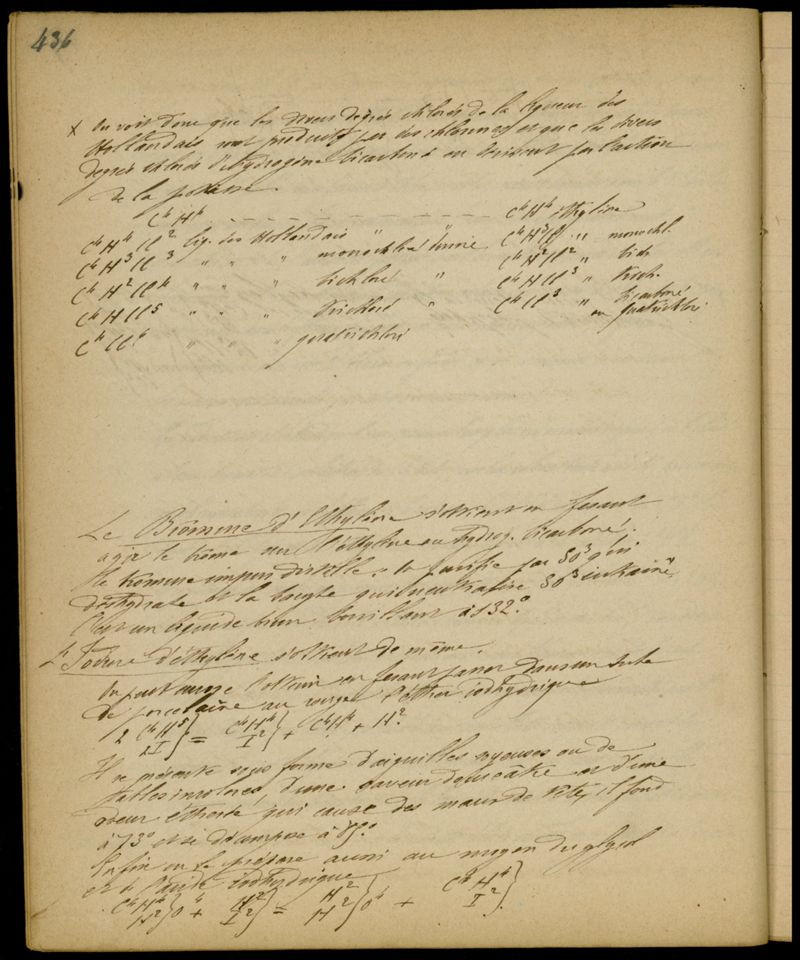 436
x On voit donc que les divers degrés chlorés de la liqueur des
Hollandais sont produits par des chlorures et que les divers
degrés chlorés d'hydrogène bicarboné en dérivent par l'action
de la potasse.
C⁴H⁴ - - - - - - - - - - - - C⁴H⁴ éthylène
C⁴H⁴Cl² liq. des Hollandais " " C⁴H³Cl " monochl.
C⁴H³Cl³ " " " monochloré donne C⁴H²Cl² " bich.
C⁴H²Cl⁴ " " " bichloré " C⁴HCl³ " trich.
C⁴HCl⁵ " " " trichloré " C⁴Cl³ " bicarboné
C⁴Cl⁶ " " " quatrichloré ou quatrichloré
Le Bromure d'Ethylène s'obtient en fesant
agir le brome sur l'éthylène ou hydrog. bicarboné.
Le bromure impur distille; on purifie par SO³ qui
déshydrate et la baryte qui neutralise SO³ entrainé
C'est un liquide brun bouillant à 132°
L'Iodure d'éthylène s'obtient de même.
On peut aussi l'obtenir en fesant passer dans un tube
de porcelaine au rouge l'éther iodhydrique
2 C⁴H⁵ / 2I } = C⁴H⁴ / I² } + C⁴H⁴ + H².
Il se présente sous forme d'aiguilles soyeuses ou de
tables incolores, d'une saveur douceâtre et d'une
odeur éthérée qui cause des maux de tête, il fond
à 73° et se décompose à 85°.
Enfin on le prépare aussi au moyen du glycol
et de l'acide iodhydrique
C⁴H⁴ / H² } O⁴ + H² / I² } = H² / H² } O⁴ + C⁴H⁴ / I² }.